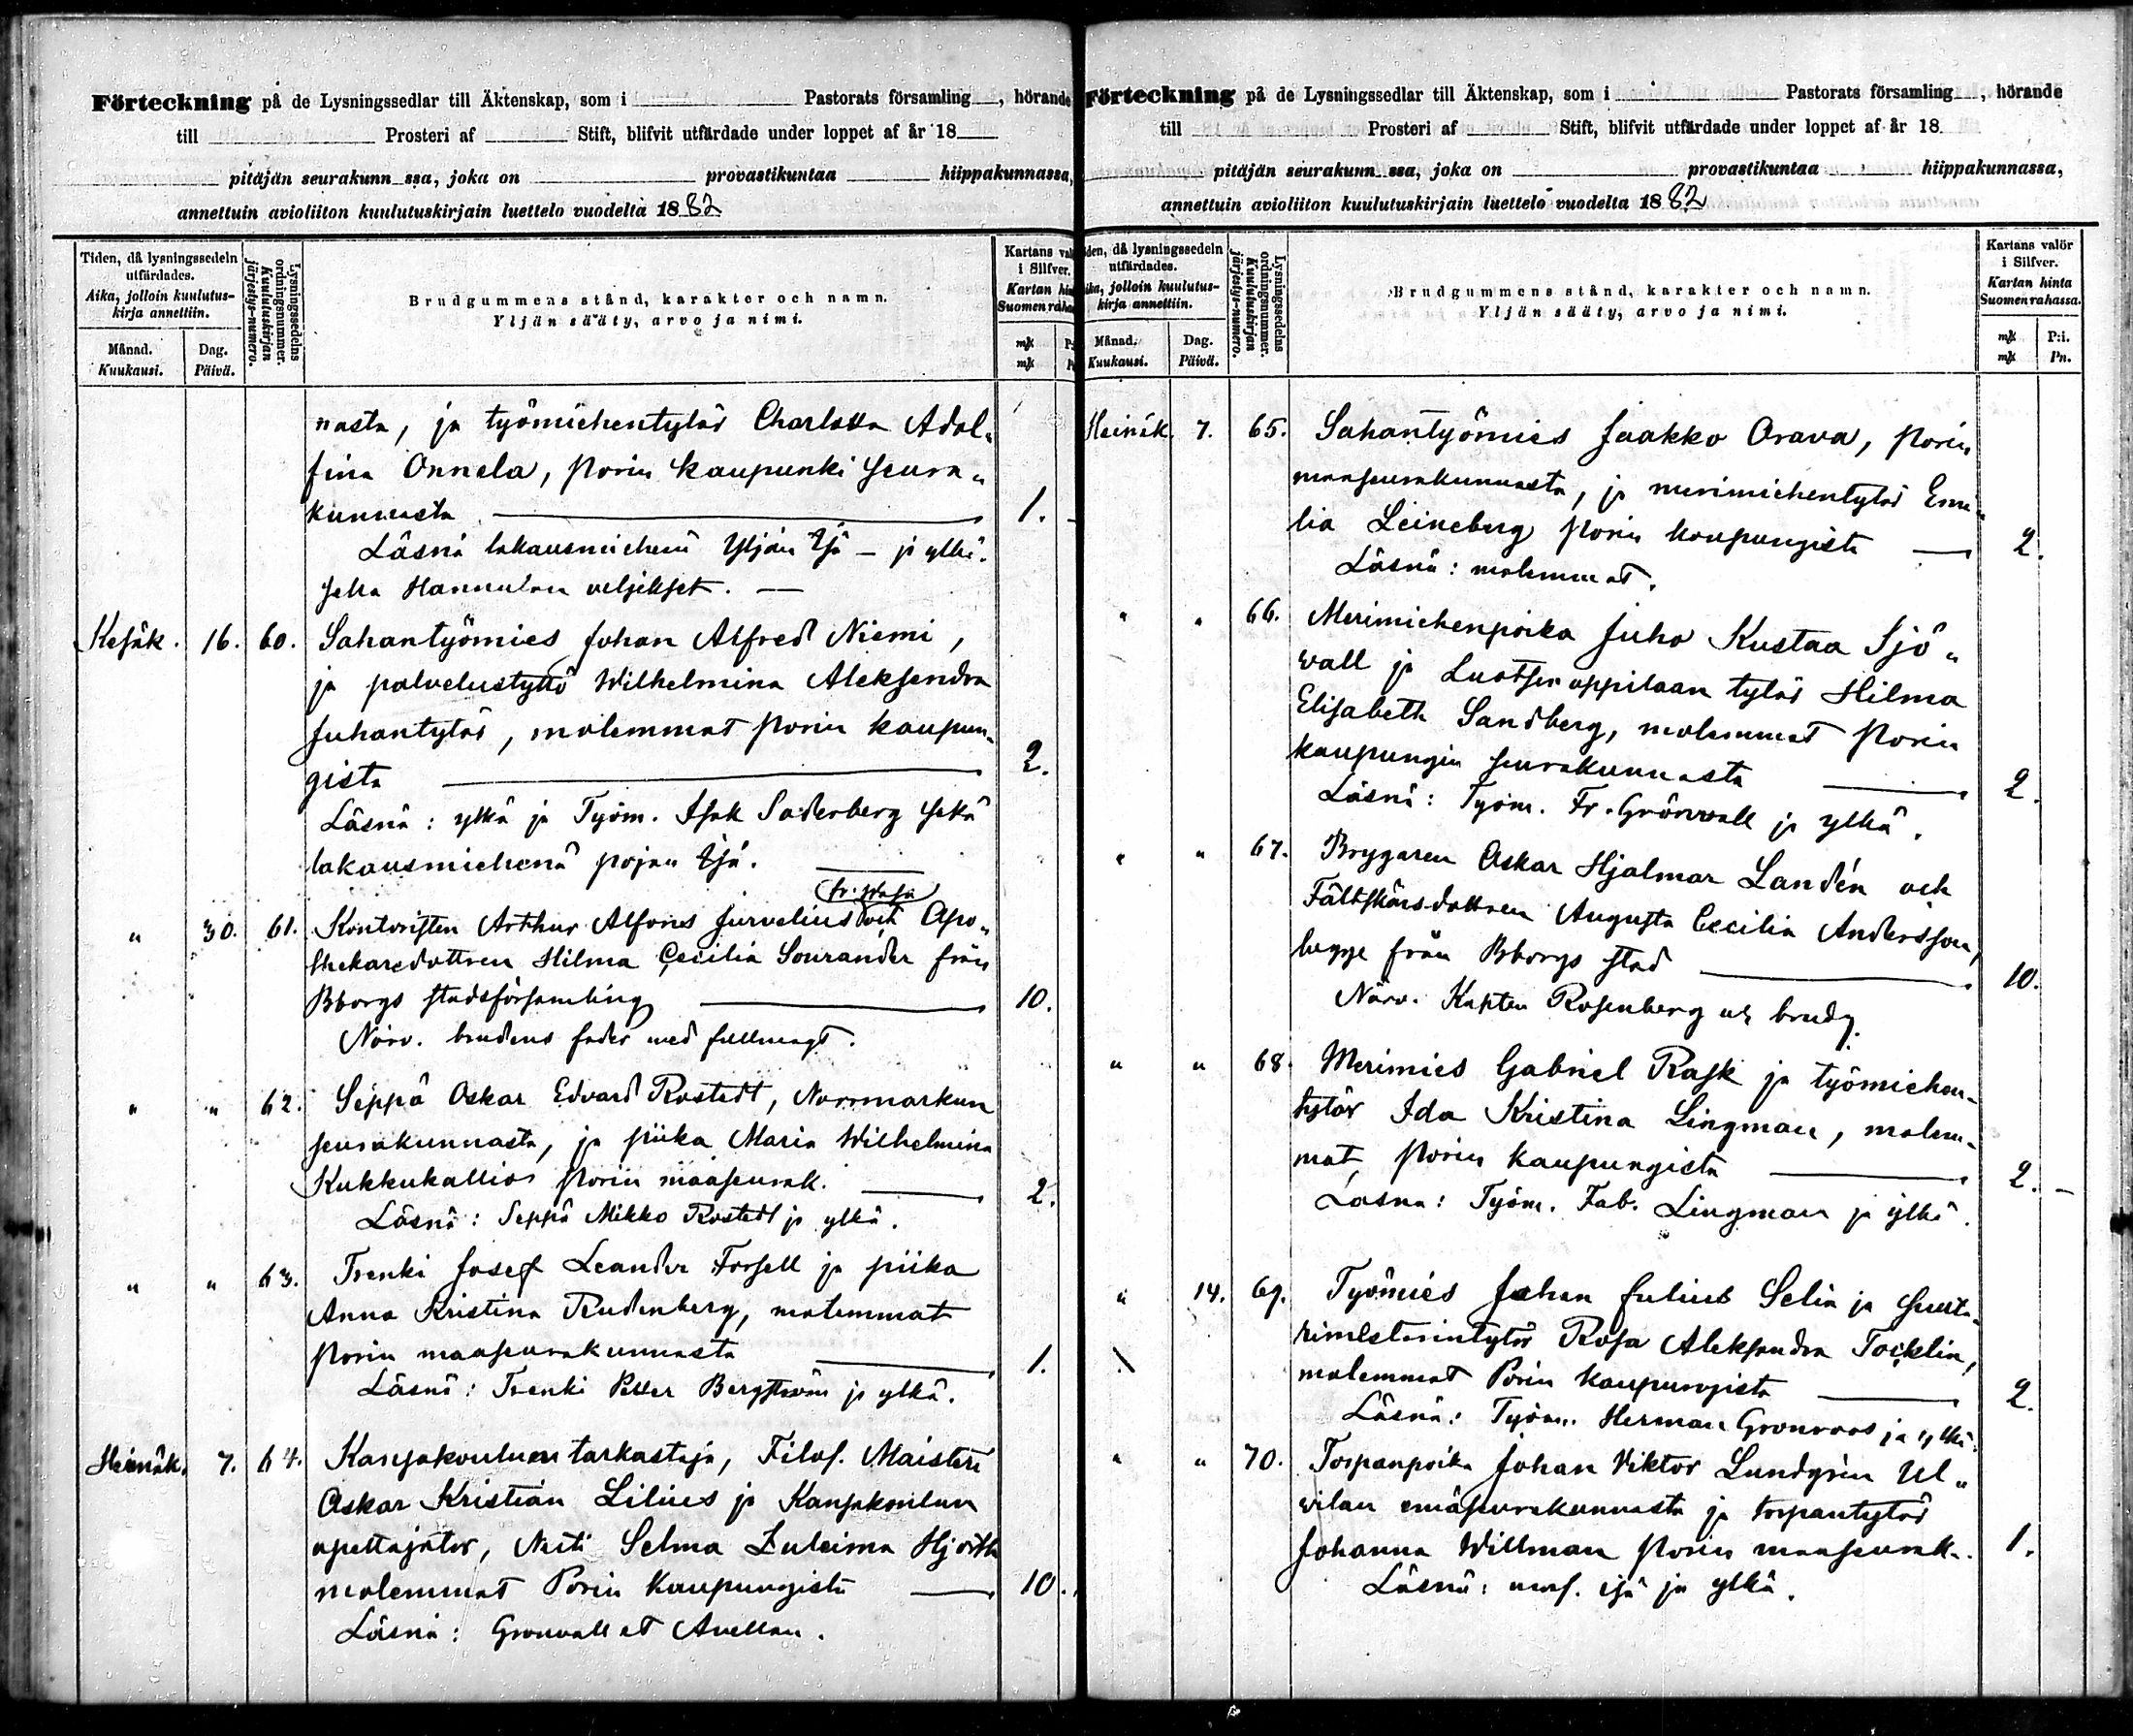 Förteckning på de Lysningssedlar till Äktenskap, som i Pastorats församling, hörande
till Prosteri af Stift, blifvit utfärdade under loppet af år 18
pitäjän seurakunn ssa, joka on provastikuntaa hiippakunnassa,
annettuin avioliiton kuulutuskirjain luettelo vuodelta 1882
Tiden, då lysningssedeln utfärdades.
Aika, jolloin kuulutus-
kirja annettiin.
Månad. Dag.
Kuukausi. Päivä.
Lysningssedelns
ordningsnummer.
Kuulutuskirjan
järjestys-numero.
Brudgummens stånd, karakter och namn.
Yljän sääty, arvo ja nimi.
Kartans val
i Silfver.
Kartan hin
Suomen raha
nasta, ja työmiehentytär Charlotta Adol„
fina Onnela, Porin kaupunki seura„
kunnasta 1.
Läsnä lakausmiehenä Yljän Isä – ja ylkä.
Hannulan veljekset.
Kesäk. 16. 60. Sahantyömies Johan Alfred Niemi,
ja palvelustyttö Wilhelmina Aleksandra
Juhantytär, molemmat Porin kaupun„
gista 2.
Läsnä: ylkä ja Työm. Isak Saderberg sekä
lakausmiehenä pojan Isä.
fr. Wasa
" 30. 61. Kontoristen Arthur Alfons Jurvelius och Apo„
thekaredottren Hilma Cecilia Sourander från
Bborgs stadsförsamling 10.
Närv. brudens fader med fullmagt.
" " 62. Seppä Oskar Edvard Rostedt, Norrmarkun
seurakunnasta, ja piika Maria Wilhelmina
Kukkukallios Porin maaseurak. 2.
Läsnä: Seppä Mikko Rostedt ja ylkä.
" " 63. Trenki Josef Leander Forsell ja piika
Anna Kristina Rudenberg, molemmat
Porin maaseurakunnasta 1.
Läsnä: Trenki Petter Bergström ja ylkä.
Heinäk. 7. 64. Kansakouluen tarkastaja, Filos. Maisteri
Oskar Kristian Lilius ja Kansakoulun
opettajatar, Neiti Selma Zuleima Hjorth
molemmat Porin kaupungista 10.
Läsnä: Gronvall et Avellan.
Förteckning på de Lysningssedlar till Äktenskap, som i Pastorats församling, hörande
till Prosteri af Stift, blifvit utfärdade under loppet af år 18
pitäjän seurakunn ssa, joka on provastikuntaa hiippakunnassa,
annettuin avioliiton kuulutuskirjain luettelo vuodelta 1882
den, då lysningssedeln
utfärdades.
ika, jolloin kuulutus-
kirja annettiin.
Månad. Dag.
Kuukausi. Päivä.
Lysningssedelns
ordningsnummer.
Kuulutuskirjan
järjestys-numero.
Brudgummens stånd, karakter och namn.
Yljän sääty, arvo ja nimi.
Kartans valör
i Silfver.
Kartan hinta
Suomen rahassa.
mk P:i.
mk Pn.
Heinäk. 7. 65. Sahantyömies Jaakko Orava, Porin
maaseurakunnasta, ja merimiehentytär Emi„
lia Leineberg Porin kaupungista 2.
Läsnä: molemmat.
" " 66. Merimiehenpoika Juho Kustaa Sjö„
wall ja Luotsin oppilaan tytär Hilma
Elisabeth Sandberg, molemmat Porin
kaupungin seurakunnasta 2.
Läsnä: Työm. Fr. Grönvall ja ylkä.
" " 67. Brygaren Oskar Hjalmar Landén och
Fältskärsdottren Augusta Cecilia Andersson,
begge från Bborgs stad 10.
Närv. Kapten Rosenberg och brudg.
" " 68. Merimies Gabriel Rask ja työmiehen„
tytär Ida Kristina Lingman, molem„
mat Porin kaupungista 2. –
Läsna: Työm. Fab. Lingman ja ylkä.
" 14. 69. Työmies Johan Julius Selin ja Suuta„
rimestarintytär Rosa Aleksandra Tocklin,
molemmat Porin kaupungista 2.
Läsnä: Työm. Herman Gronroos ja ylkä.
" " 70. Torpanpoika Johan Viktor Lundgrén Ul„
wilan emäseurakunnasta ja torpantytär
Johanna Willman Porin maaseurak. 1.
Läsnä: mors. isä ja ylkä.